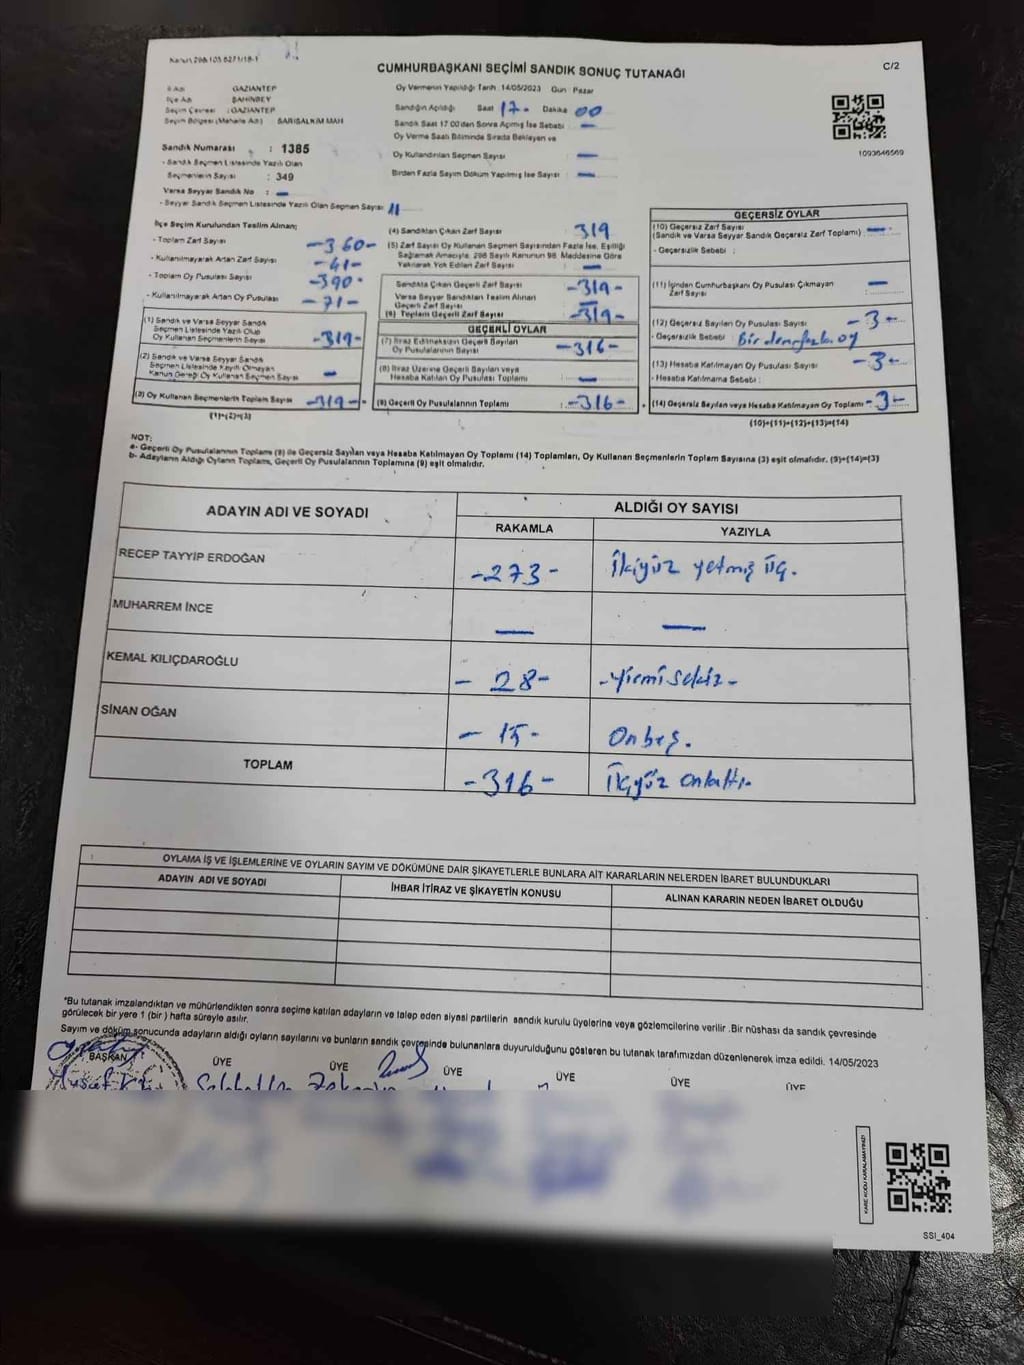 Kanun 298-103 6271/18-1
CUMHURBAŞKANI SEÇİMİ SANDIK SONUÇ TUTANAĞI
C/2
İl Adı GAZİANTEP
İlçe Adı ŞAHİNBEY
Seçim Çevresi : GAZİANTEP
Seçim Bölgesi (Mahalle Adı) : SARISALKIM MAH
Oy Vermenin Yapıldığı Tarih : 14/05/2023 Gün : Pazar
Sandığın Açıldığı Saat 17.- Dakika 00
Sandık Saat 17:00'den Sonra Açılmış İse Sebebi : —
Oy Verme Saati Bitiminde Sırada Bekleyen ve
Oy Kullandırılan Seçmen Sayısı —
Birden Fazla Sayım Döküm Yapılmış İse Sayısı —
1093646569
Sandık Numarası : 1385
- Sandık Seçmen Listesinde Yazılı Olan
Seçmenlerin Sayısı : 349
Varsa Seyyar Sandık No : —
- Seyyar Sandık Seçmen Listesinde Yazılı Olan Seçmen Sayısı : 11
İlçe Seçim Kurulundan Teslim Alınan;
- Toplam Zarf Sayısı -360-
- Kullanılmayarak Artan Zarf Sayısı -41-
- Toplam Oy Pusulası Sayısı -390-
- Kullanılmayarak Artan Oy Pusulası -71-
(1) Sandık ve Varsa Seyyar Sandık
Seçmen Listesinde Yazılı Olup
Oy Kullanan Seçmenlerin Sayısı -319-
(2) Sandık ve Varsa Seyyar Sandık
Seçmen Listesinde Kayıtlı Olmayan
Kanun Gereği Oy Kullanan Seçmen Sayısı —
(3) Oy Kullanan Seçmenlerin Toplam Sayısı -319-
(1)+(2)=(3)
(4) Sandıktan Çıkan Zarf Sayısı 319
(5) Zarf Sayısı Oy Kullanan Seçmen Sayısından Fazla İse, Eşitliği
Sağlamak Amacıyla, 298 Sayılı Kanunun 98. Maddesine Göre
Yakılarak Yok Edilen Zarf Sayısı —
Sandıkta Çıkan Geçerli Zarf Sayısı -319-
Varsa Seyyar Sandıktan Teslim Alınan
Geçerli Zarf Sayısı —
(6) Toplam Geçerli Zarf Sayısı -319-
GEÇERLİ OYLAR
(7) İtiraz Edilmeksizin Geçerli Sayılan
Oy Pusulalarının Sayısı -316-
(8) İtiraz Üzerine Geçerli Sayılan veya
Hesaba Katılan Oy Pusulası Toplamı —
(9) Geçerli Oy Pusulalarının Toplamı -316-
GEÇERSİZ OYLAR
(10) Geçersiz Zarf Sayısı
(Sandık ve Varsa Seyyar Sandık Geçersiz Zarf Toplamı) : —
- Geçersizlik Sebebi :
(11) İçinden Cumhurbaşkanı Oy Pusulası Çıkmayan
Zarf Sayısı —
(12) Geçersiz Sayılan Oy Pusulası Sayısı -3-
- Geçersizlik Sebebi : Birden fazla oy
(13) Hesaba Katılmayan Oy Pusulası Sayısı -3-
- Hesaba Katılmama Sebebi :
(14) Geçersiz Sayılan veya Hesaba Katılmayan Oy Toplamı -3-
(10)+(11)+(12)+(13)=(14)
NOT:
a- Geçerli Oy Pusulalarının Toplamı (9) ile Geçersiz Sayılan veya Hesaba Katılmayan Oy Toplamı (14) Toplamları, Oy Kullanan Seçmenlerin Toplam Sayısına (3) eşit olmalıdır. (9)+(14)=(3)
b- Adayların Aldığı Oyların Toplamı, Geçerli Oy Pusulalarının Toplamına (9) eşit olmalıdır.
ADAYIN ADI VE SOYADI
ALDIĞI OY SAYISI
RAKAMLA YAZIYLA
RECEP TAYYİP ERDOĞAN -273- İkiyüz yetmiş üç.
MUHARREM İNCE — —
KEMAL KILIÇDAROĞLU - 28- -yirmi sekiz-
SİNAN OĞAN - 15- Onbeş.
TOPLAM -316- Üçyüz onaltı.
OYLAMA İŞ VE İŞLEMLERİNE VE OYLARIN SAYIM VE DÖKÜMÜNE DAİR ŞİKAYETLERLE BUNLARA AİT KARARLARIN NELERDEN İBARET BULUNDUKLARI
ADAYIN ADI VE SOYADI İHBAR İTİRAZ VE ŞİKAYETİN KONUSU ALINAN KARARIN NEDEN İBARET OLDUĞU
*Bu tutanak imzalandıktan ve mühürlendikten sonra seçime katılan adayların ve talep eden siyasi partilerin sandık kurulu üyelerine veya gözlemcilerine verilir .Bir nüshası da sandık çevresinde
görülecek bir yere 1 (bir ) hafta süreyle asılır.
Sayım ve döküm sonucunda adayların aldığı oyların sayılarını ve bunların sandık çevresinde bulunanlara duyurulduğunu gösteren bu tutanak tarafımızdan düzenlenerek imza edildi. 14/05/2023
BAŞKAN ÜYE ÜYE ÜYE ÜYE ÜYE ÜYE
KARE KODU KARALAMAYINIZ!
SSI_404